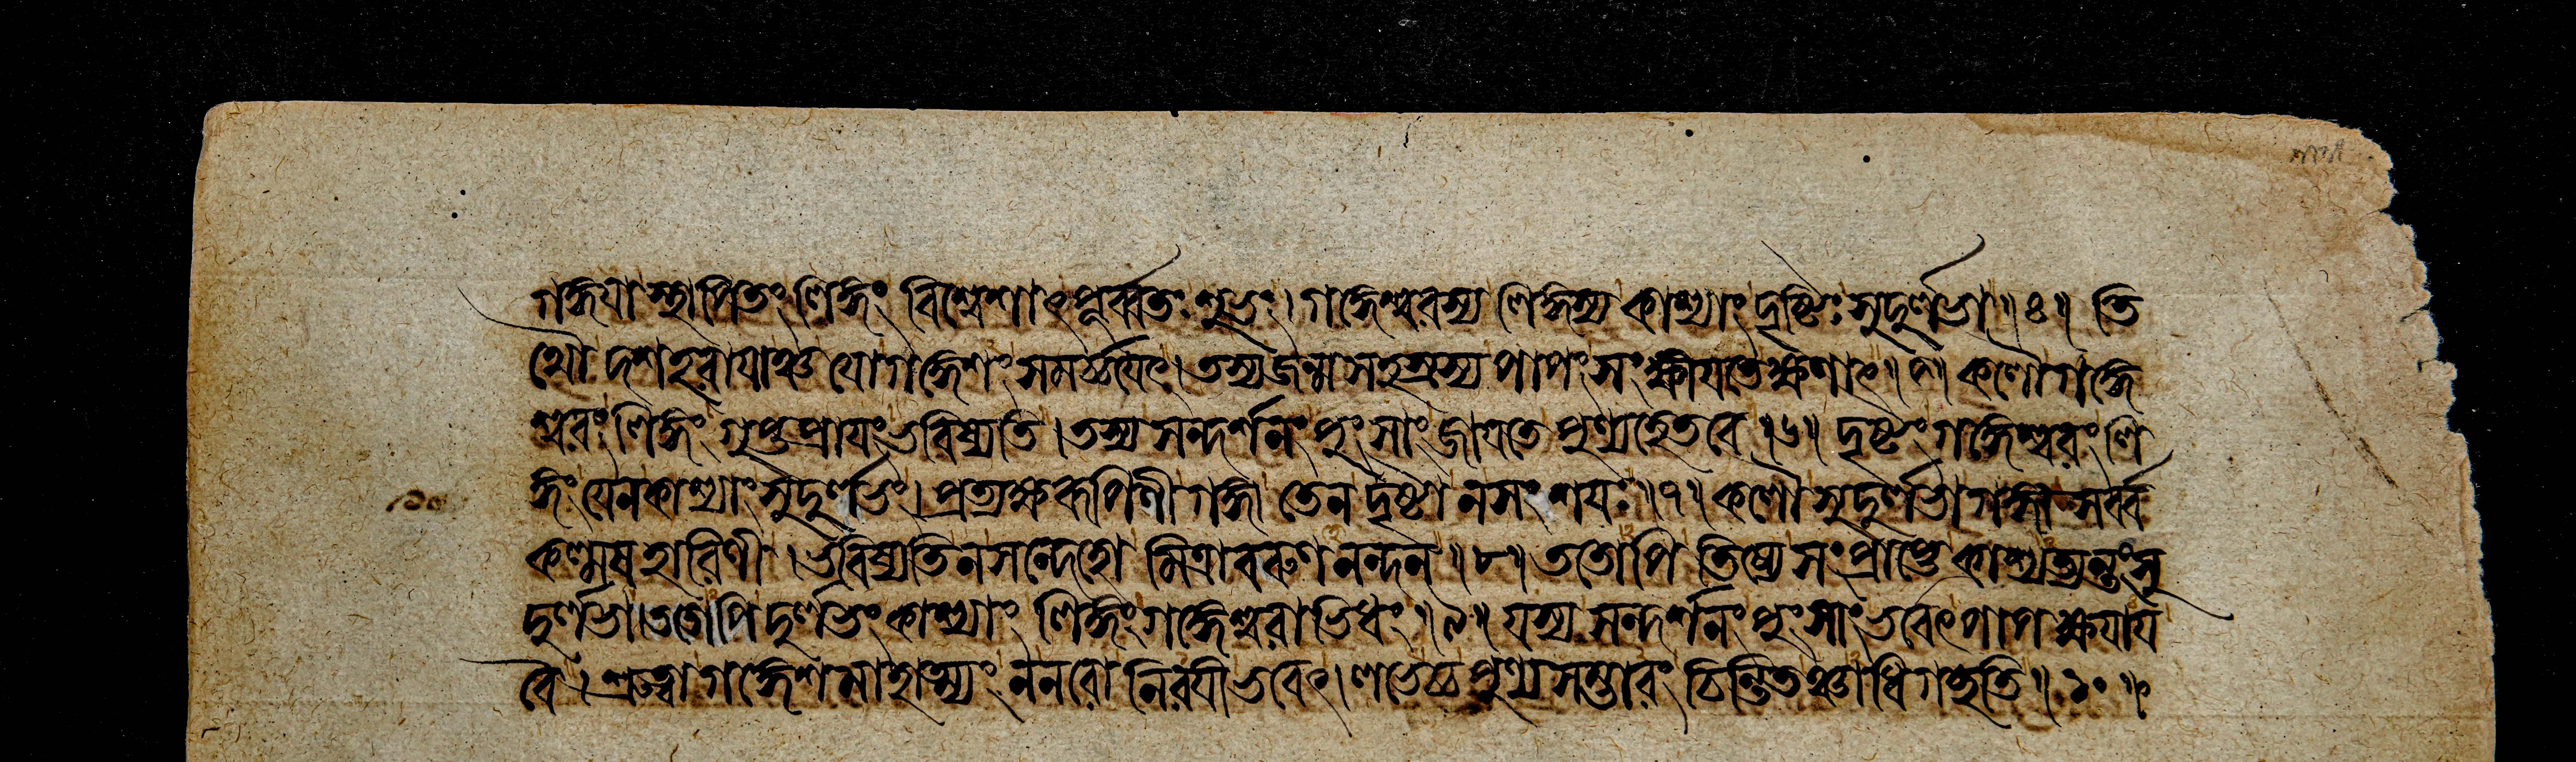 গঙ্গয়া স্থাপিতং লিঙ্গং বিশ্বেশাৎ পূর্ব্বতঃ শুভং। গঙ্গেশ্বরস্য লিঙ্গস্য কাশ্যাং দৃষ্টিঃ সুদুর্লভা॥ ৪॥ তি
থৌ দশহরায়াঞ্চ যো গঙ্গেশং সমর্চ্চয়েৎ। তস্য জন্মসহস্রস্য পাপং সংক্ষীয়তে ক্ষণাৎ॥ ৫॥ কলৌ গঙ্গে
শ্বরং লিঙ্গং গুপ্তপ্রায়ং ভবিষ্যতি। তস্য সন্দর্শনং পুংসাং জায়তে পুণ্যহেতবে॥ ৬॥ দৃষ্টং গঙ্গেশ্বরং লি
ঙ্গং যেন কাশ্যাং সুদুর্লভং। প্রত্যক্ষরূপিণী গঙ্গা তেন দৃষ্টা ন সংশয়ঃ॥ ৭॥ কলৌ সুদুর্লভা গঙ্গা সর্ব্ব
কল্মষহারিণী। ভবিষ্যতি ন সন্দেহো মিত্রাবরুণনন্দন॥ ৮॥ ততোপি তিষ্যে সংপ্রাপ্তে কাশ্যত্যন্তং সু
দুর্লভা। ততোপি দুর্লভং কাশ্যাং লিঙ্গং গঙ্গেশ্বরাভিধং॥ ৯॥ যস্য সন্দর্শনং পুংসাং ভবেৎ পাপক্ষয়ায়
বৈ। শ্রুত্বা গঙ্গেশমাহাত্ম্যং ন নরো নিরয়ী ভবেৎ। লভেচ্চ পুণ্যসম্ভারং চিন্তিতঞ্চাধিগচ্ছতি॥ ১০॥